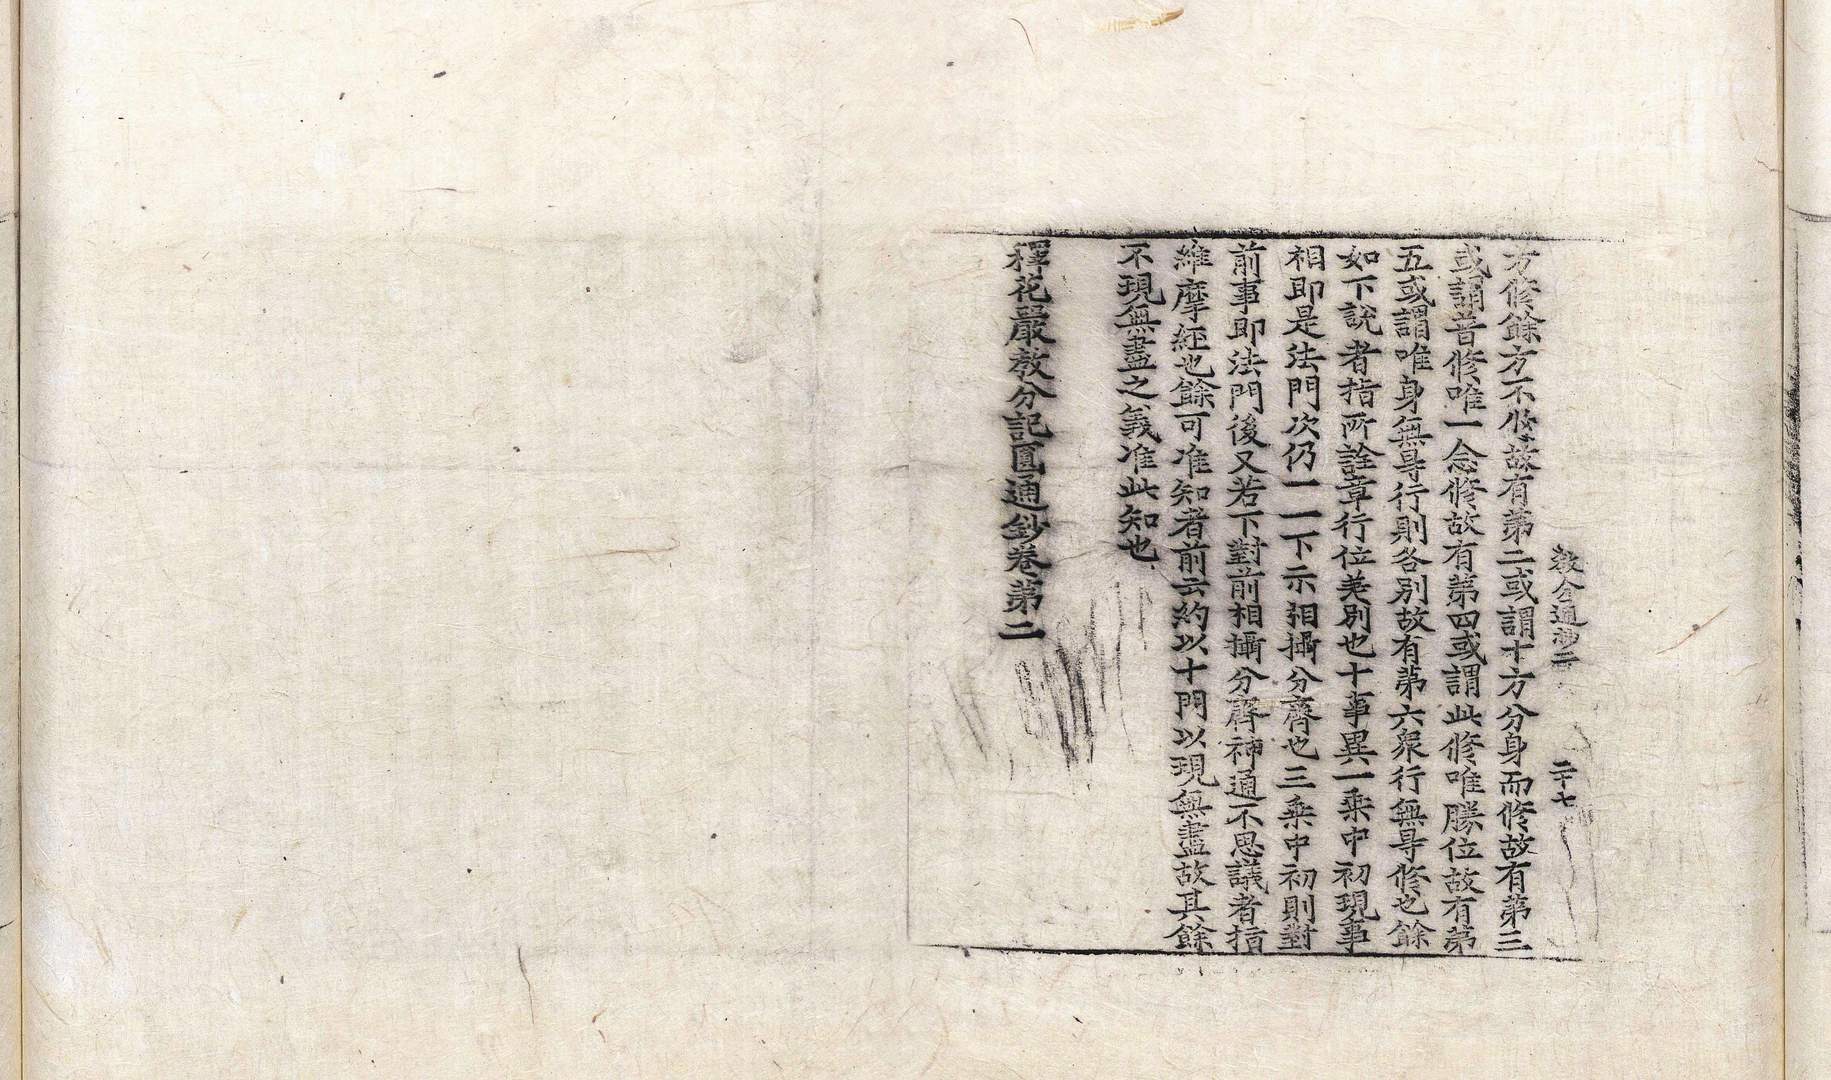 教分通抄二　二十七
方修餘方不修故有第二或謂十方分身而修故有第三
或謂普修唯一念修故有第四或謂此修唯勝位故有第
五或謂唯身無㝵行則各別故有第六衆行無㝵修也餘
如下說者指所詮章行位差別也十事異一乘中初現事
相即是法門次仍一一下示相攝分齊也三乘中初則對
前事即法門後又若下對前相攝分齊神通不思議者指
維摩經也餘可准知者前云約以十門以現無盡故其餘
不現無盡之義准此知也
釋花嚴教分記圓通鈔卷第二